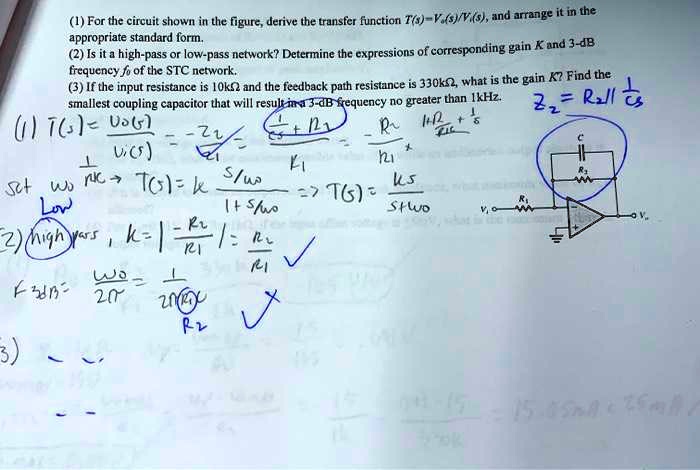 (1) For the circuit shown in the figure, derive the transfer function T(s)=Vₒ(s)/Vᵢ(s), and arrange it in the
appropriate standard form.
(2) Is it a high-pass or low-pass network? Determine the expressions of corresponding gain K and 3-dB
frequency fₒ of the STC network.
(3) If the input resistance is 10kΩ and the feedback path resistance is 330kΩ, what is the gain K? Find the
smallest coupling capacitor that will result in a 3-dB frequency no greater than 1kHz.
Z₂ = R₂ll 1/Cs
(1) T(s) = Vo(s)/Vi(s) = -Z2/Z1 = (1/cs + R2)/R1 = -R2/R1
Set wo
T(s) = k (s/wo)/(1+s/wo) => T(s) = ks/(s+wo)
Low
2) high pass, k = |-R2/R1| = R2/R1
F3dB = wo/2π = 1/2πR1C
R2
3)
C
R₂
R₁
Vᵢ
Vₒ